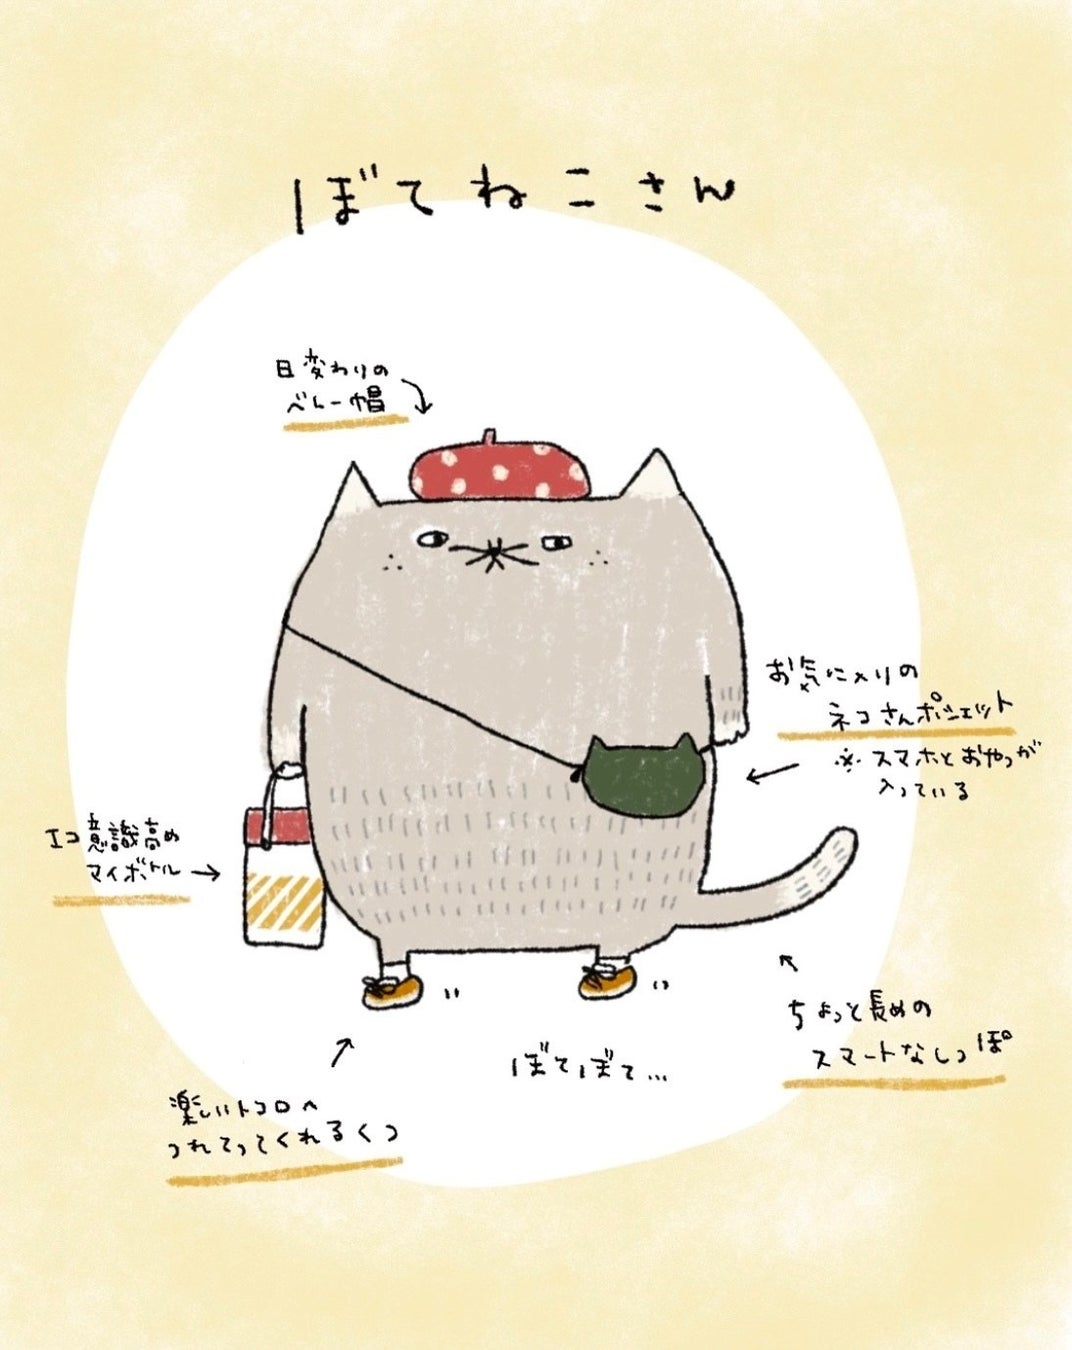 ぼてねこさん
日変わりの
べレー帽
お気に入りの
ネコさんポシェット
※スマホとおやつが
入っている
エコ意識高め
マイボトル
ちょっと長めの
スマートなしっぽ
ぼてぼて...
楽しいトコロへ
つれてってくれるくつ